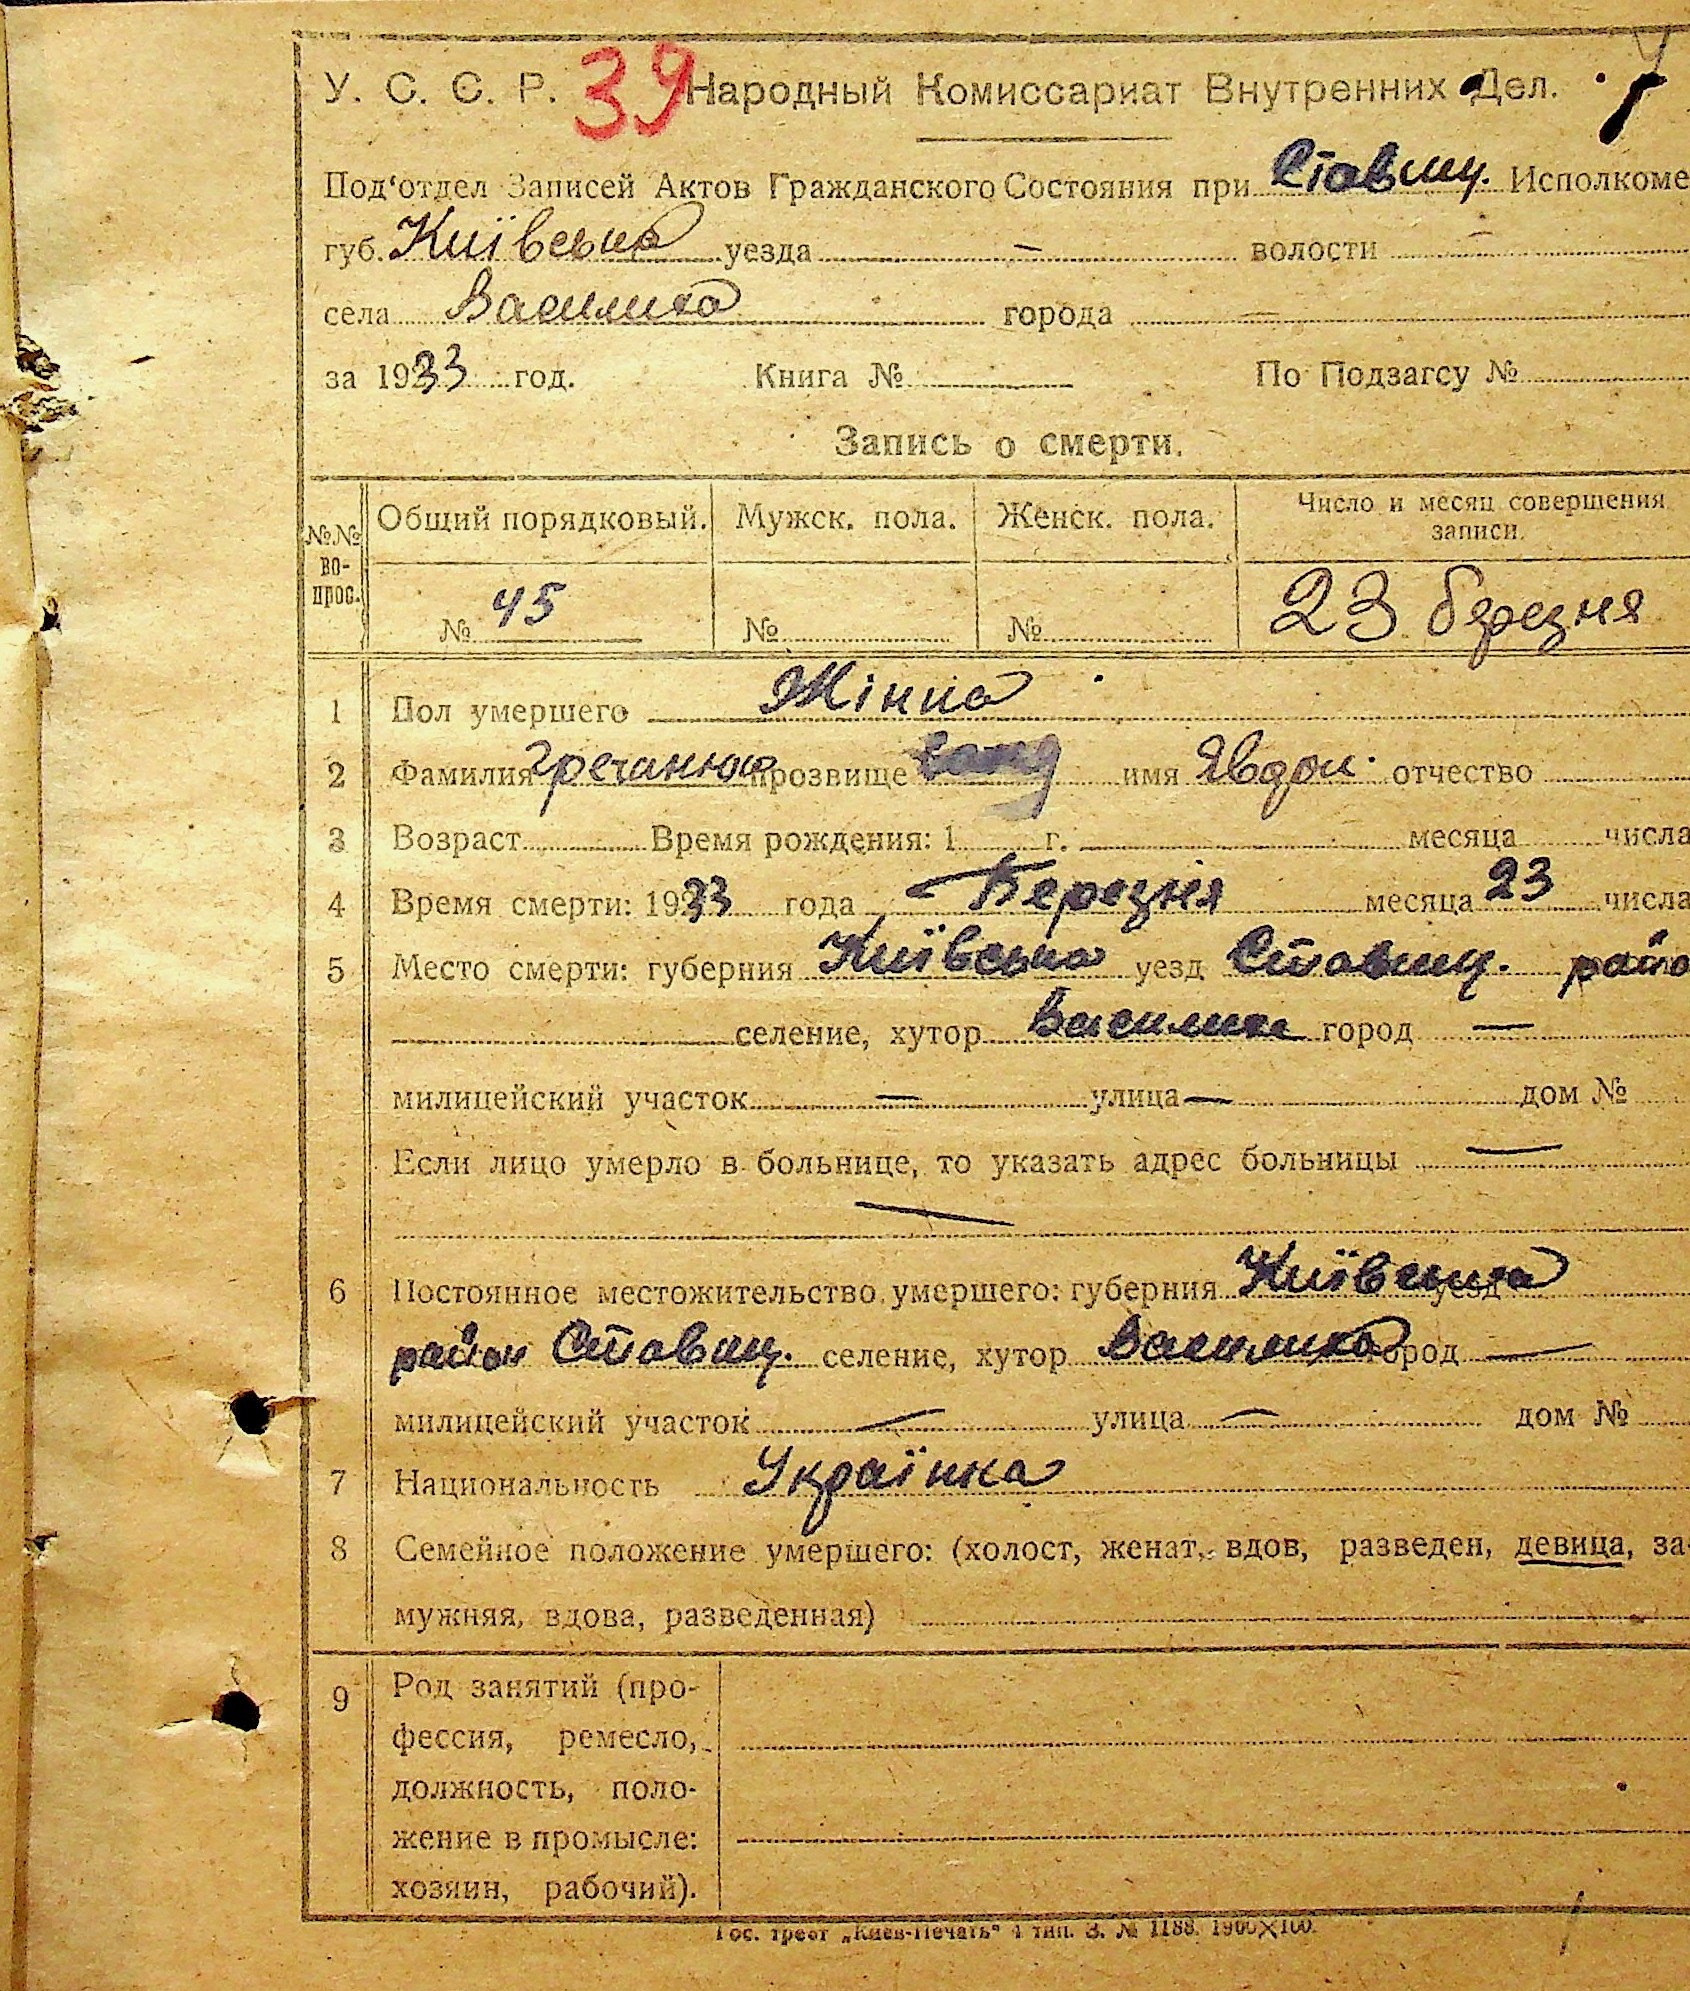 У. С. С. Р. 39 Народный Комиссариат Внутренних Дел.
Под‘отдел Записей Актов Гражданского Состояния при Ставищ. Исполкоме
губ. Київська уезда — волости —
села Василиха города —
за 1933 год. Книга № По Подзагсу №
Запись о смерти.
№№ во- прос. Общий порядковый. Мужск. пола. Женск. пола. Число и месяц совершения записи.
№ 45 № № 23 березня
1 Пол умершего Жінка
2 Фамилия Гречанюк прозвище имя Явдок. отчество
3 Возраст Время рождения: 1 г. месяца числа
4 Время смерти: 1933 года Березня месяца 23 числа
5 Место смерти: губерния Київська уезд Ставищ. райо
селение, хутор Василиха город —
милицейский участок — улица — дом №
Если лицо умерло в больнице, то указать адрес больницы —
—
6 Постоянное местожительство умершего: губерния Київська уезд
район Ставищ. селение, хутор Василиха город —
милицейский участок — улица — дом №
7 Национальность Українка
8 Семейное положение умершего: (холост, женат, вдов, разведен, девица, за-
мужняя, вдова, разведенная)
9 Род занятий (про-
фессия, ремесло,
должность, поло-
жение в промысле:
хозяин, рабочий).
Гос. трест „Киев-Печать“ 4 тип. З. № 1188. 1900×100.